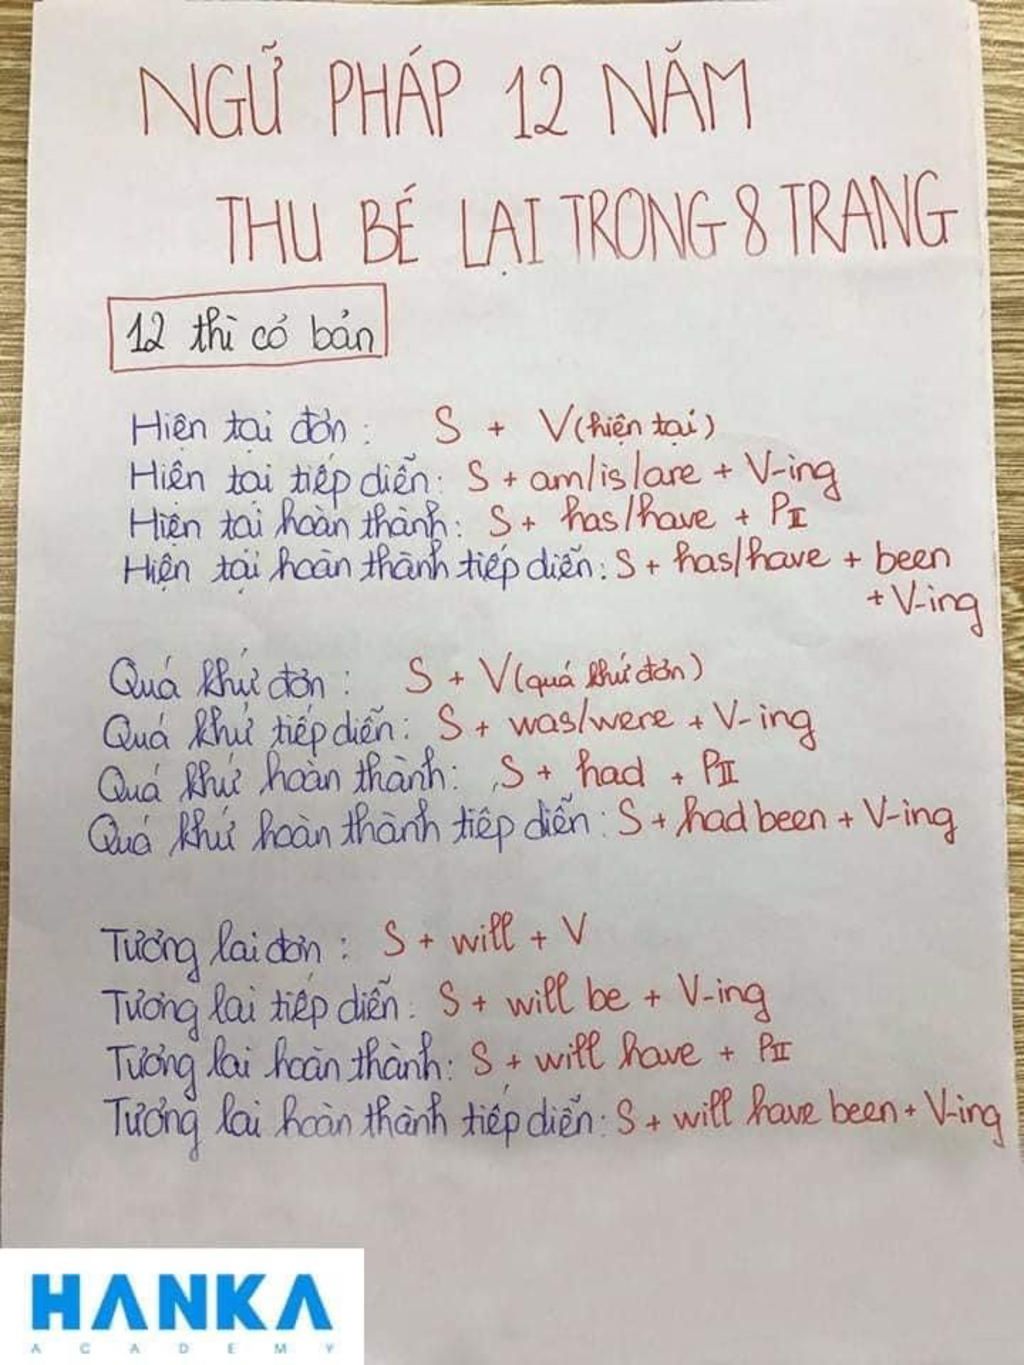 NGỮ PHÁP 12 NĂM
THU BÉ LẠI TRONG 8 TRANG
12 thì cơ bản
Hiện tại đơn: S + V(hiện tại)
Hiện tại tiếp diễn: S + am/is/are + V-ing
Hiện tại hoàn thành: S + has/have + PII
Hiện tại hoàn thành tiếp diễn: S + has/have + been
+ V-ing
Quá khứ đơn: S + V(quá khứ đơn)
Quá khứ tiếp diễn: S + was/were + V-ing
Quá khứ hoàn thành: S + had + PII
Quá khứ hoàn thành tiếp diễn: S + had been + V-ing
Tương lai đơn: S + will + V
Tương lai tiếp diễn: S + will be + V-ing
Tương lai hoàn thành: S + will have + PII
Tương lai hoàn thành tiếp diễn: S + will have been + V-ing
HANKA
ACADEMY